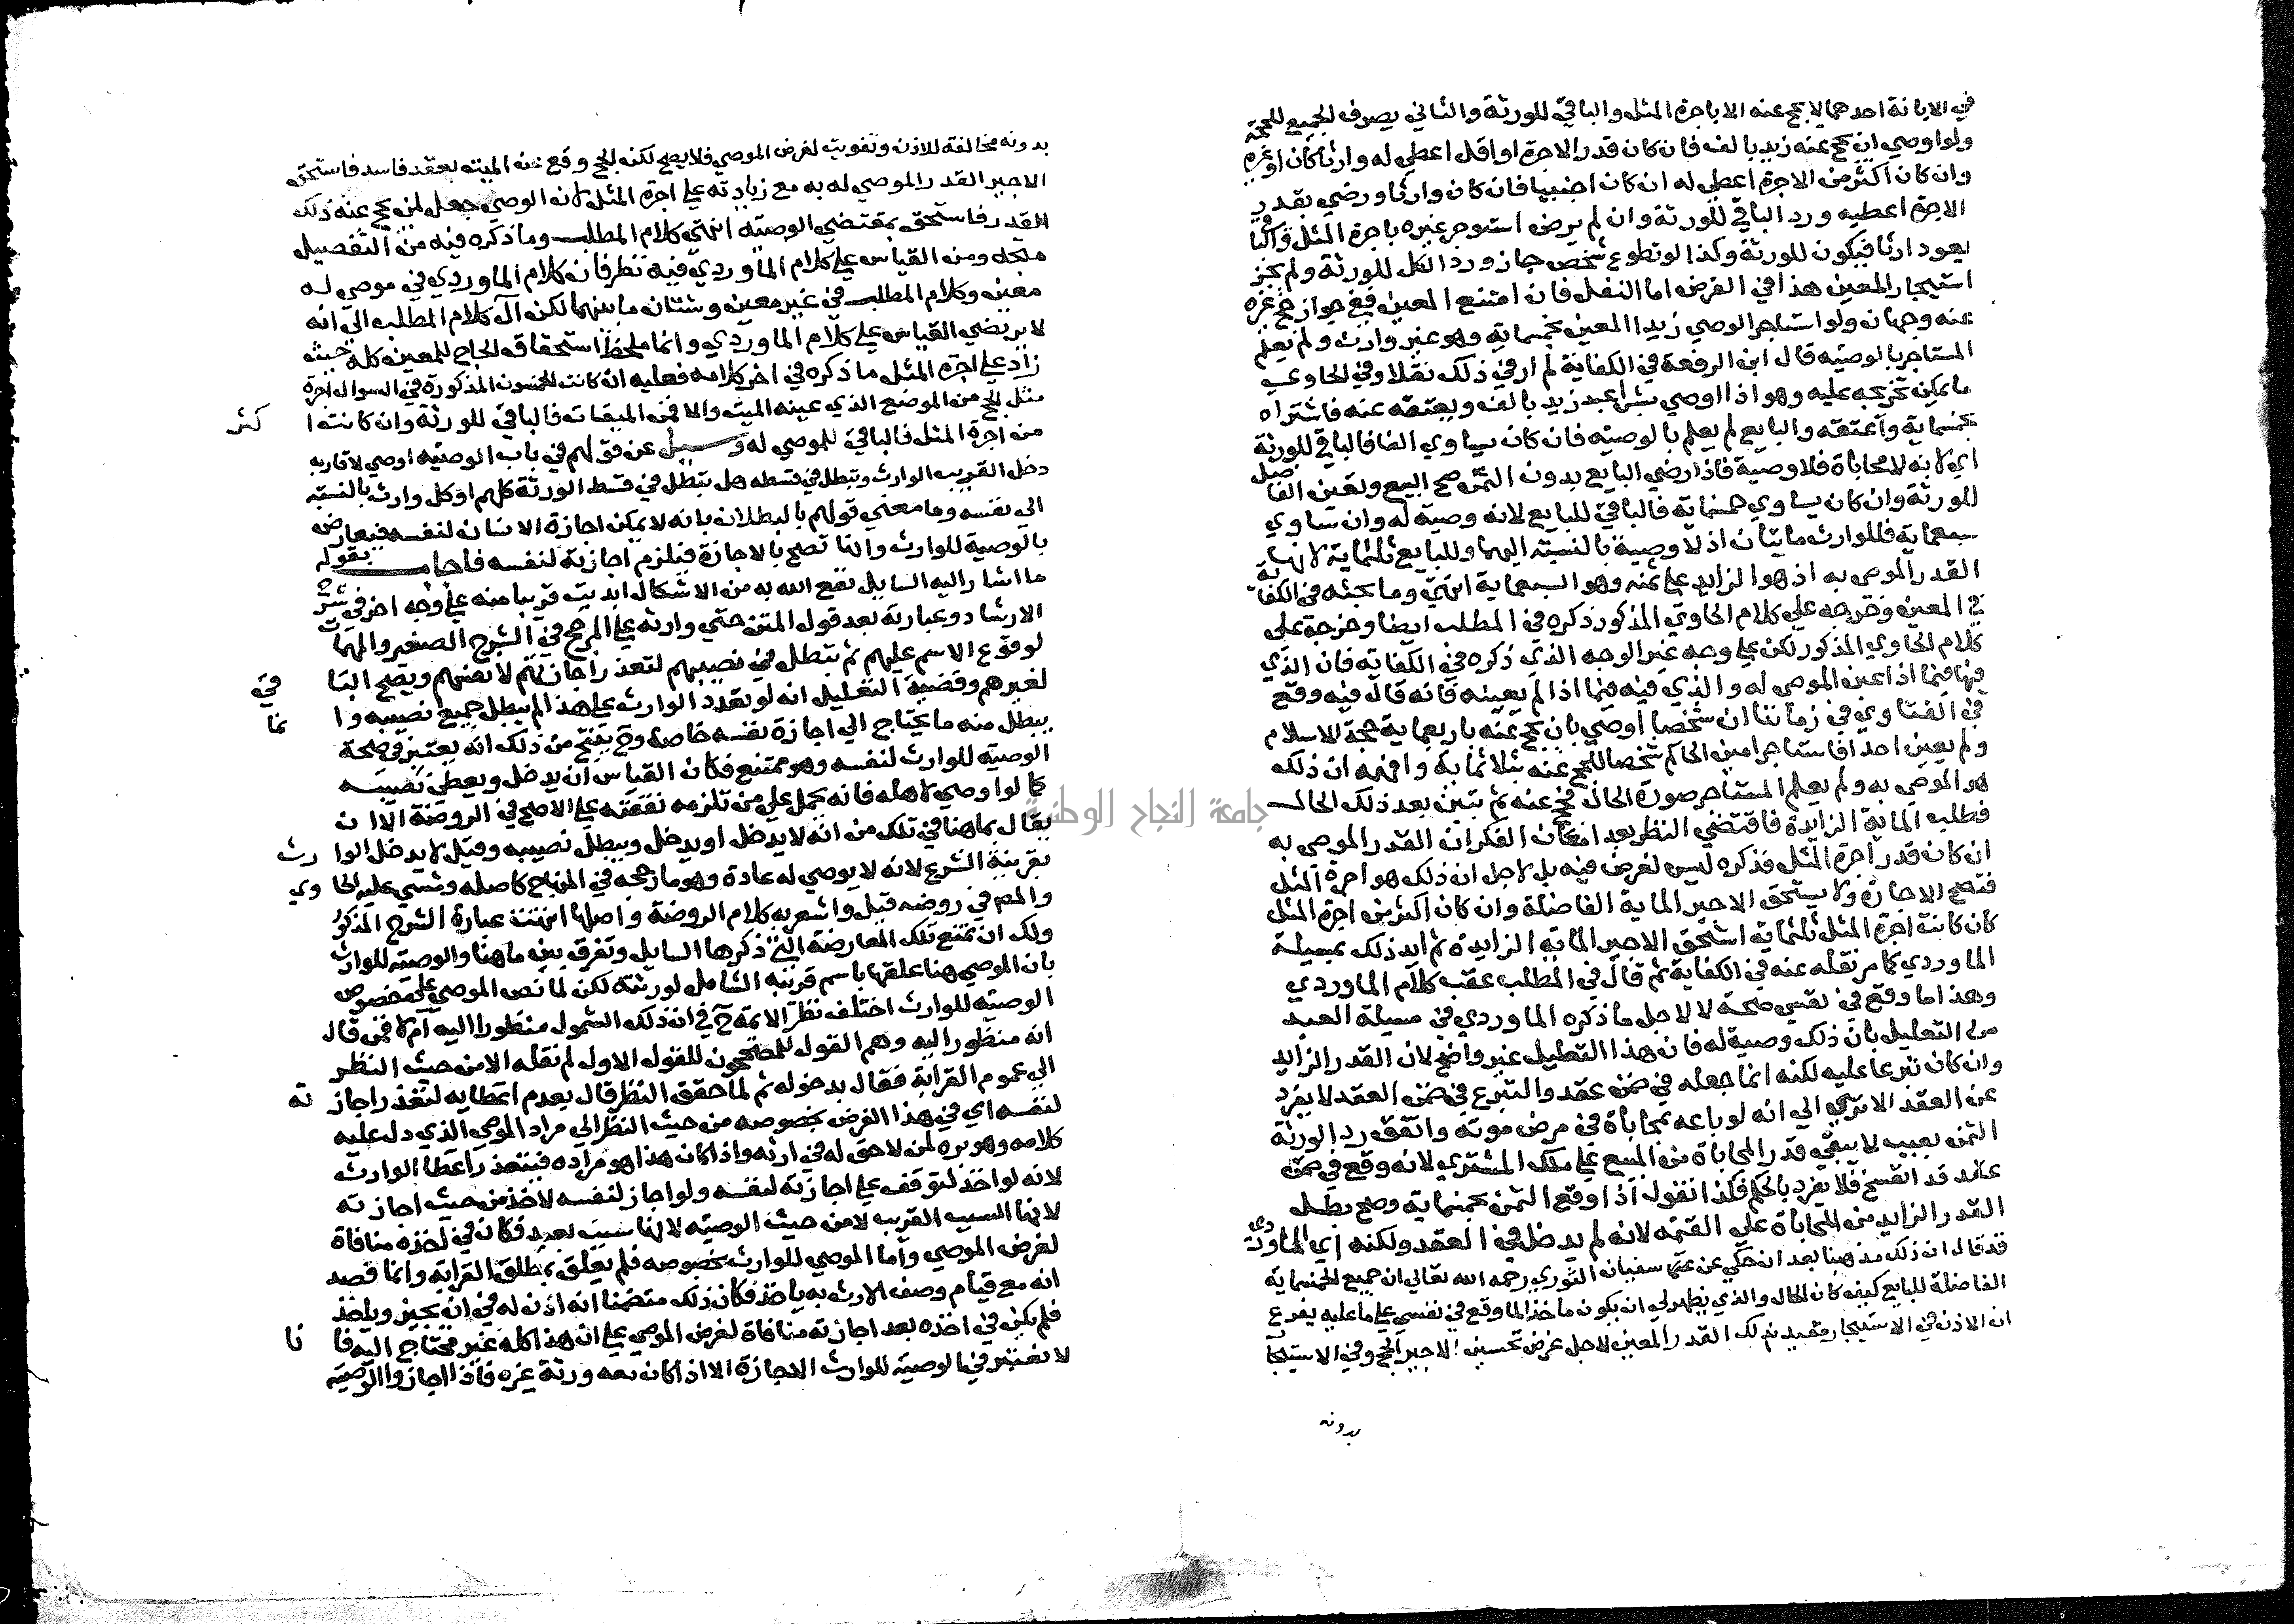 في الابانة احدهما لا يحج عنه الا باجرة المثل والباقي للورثة والثاني يصرف الجميع للحجة
ولو اوصي ان يحج عنه زيد بالف فان كان قدر الاجرة او اقل اعطي له وارثا كان او غيره
وان كان اكثر من الاجرة اعطي له ان كان اجنبيا فان كان وارثا ورضي بقدر
الاجرة اعطيه ورد الباقي للورثة وان لم يرض استوجر غيره باجرة المثل
يعود ارثا فيكون للورثة وكذا لو تطوع شخص جاز ورد الكل للورثة ولم يجز
استيجار المعين هذا في الفرض اما النفل فان امتنع المعين ففي جواز حج غيره
عنه وجهان ولو استاجر الوصي زيدا المعين بخمسماية وهو غير وارث ولم يعلم
المستاجر بالوصية قال ابن الرفعة في الكفاية لم ار في ذلك نقلا وفي الحاوي
ما يمكن تخريجه عليه وهو اذا اوصي بشرا عبد زيد بالف ويعتقه عنه فاشتراه
بخمسماية واعتقه والبايع لم يعلم بالوصية فان كان يساوي الفا فالباقي للورثة
اي لانه لا محاباة فلا وصية فاذا رضي البايع بدون الثمن صح البيع وتعين الفاضل
للورثة وان كان يساوي خمسماية فالباقي للبايع لانه وصية له وان ساوي
سبعماية فللوارث مايتان اذ لا وصية بالنسبة اليهما وللبايع ثلثماية لانها
القدر الموصي به اذ هو الزايد علي ثمنه وهو السبعماية انتهي وما بحثه في الكفاية
في المعين وخرجه علي كلام الحاوي المذكور ذكره في المطلب ايضا وخرجه علي
كلام الحاوي المذكور لكن علي وجه غير الوجه الذي ذكره في الكفاية فان الذي
فيها فيما اذا عين الموصي له والذي فيه فيما اذا لم يعينه فانه قال فيه وقع
في الفتاوي في زماننا ان شخصا اوصي بان يحج عنه باربعماية حجة الاسلام
ولم يعين احدا فاستاجر امين الحاكم شخصا للحج عنه بثلاثماية وافهمه ان ذلك
هو الموصي به ولم يعلم المستاجر صورة الحال فحج عنه ثم تبين بعد ذلك الحال
فطلب الماية الزايدة فاقتضي النظر بعد امعان الفكر ان القدر الموصي به
ان كان قدر اجرة المثل فذكره ليس لغرض فيه بل لاجل ان ذلك هو اجرة المثل
فتصح الاجارة ولا يستحق الاجير الماية الفاضلة وان كان اكثر من اجرة المثل
كان كانت اجرة المثل ثلثماية استحق الاجير الماية الزايدة ثم ايد ذلك بمسيلة
الماوردي كما مر نقله عنه في الكفاية ثم قال في المطلب عقب كلام الماوردي
وهذا ما وقع في نفسي صحة لا لاجل ما ذكره الماوردي في مسيلة العبد
من التعليل بان ذلك وصية له فان هذا التعليل غير واضح لان القدر الزايد
وان كان تبرعا عليه لكنه انما جعله في ضمن عقد والتبرع في ضمن العقد لا يفرد
عن العقد الا تري الي انه لو باعه بمحاباة في مرض موته واتفق رد الورثة
الثمن بعيب لا يبقي قدر المحاباة من المبيع علي ملك المشتري لانه وقع في ضمن
عقد قد انفسخ فلا يفرد بالحكم فكذا نقول اذا وقع الثمن بخمسماية وصح بطل
القدر الزايد من المحاباة علي القيمة لانه لم يدخل في العقد ولكنه اي الماوردي
قد قال ان ذلك مذهبنا بعد ان حكي عن سفيان الثوري رحمه الله تعالي ان جميع الخمسماية
الفاضلة للبايع كيف كان الحال والذي يظهر لي ان يكون ماخذ الما وقع في نفسي علي ما عليه يفرع
ان الاذن في الاستيجار مقيد بذلك القدر المعين لاجل غرض تحسين الاجير الحج وفي الاستيجا
بدونه
بدونه مخالفة للاذن وتفويت لغرض الموصي فلا يصح لكنه الحج وقع عنه الميت بعقد فاسد فاستحق
الاجير القدر الموصي له به مع زيادته علي اجرة المثل لان الوصي جعل لمن يحج عنه ذلك
القدر فاستحق بمقتضي الوصية انتهي كلام المطلب وما ذكره فيه من التفصيل
متجه ومن القياس علي كلام الماوردي فيه نظر فان كلام الماوردي في موصي له
معين وكلام المطلب في غير معين وشتان ما بينهما لكن آل كلام المطلب الي انه
لا يرتضي القياس علي كلام الماوردي وانما ملحظ استحقاق الحاج المعين كله حيث
زاد علي اجرة المثل ما ذكره في اخر كلامه فعليه ان كانت الخمسون المذكورة في السوال اجرة
مثل الحج من الموضع الذي عينه الميت والا فمن الميقات فالباقي للورثة وان كانت اكثر
من اجرة المثل فالباقي للموصي له وسيل عن قولهم في باب الوصية اوصي لاقاربه
دخل القريب الوارث وتبطل في قسطه هل تبطل في قسط الورثة كلهم او كل وارث بالنسبة
الي نفسه وما معني قولهم بالبطلان بانه لا يمكن اجازة الانسان لنفسه فيعارض
بالوصية للوارث وانها تصح بالاجازة فيلزم اجازته لنفسه فاجاب بقوله
ما اشار اليه السايل نفع الله به من الاشكال ابديت قريبا منه علي وجه اخر في شرح
الارشاد وعبارته بعد قول المتن حتي وارثه علي المرجح في الشرح الصغير والمهمات
لوقوع الاسم عليهم ثم تبطل في نصيبهم لتعذر اجازتهم لانفسهم ويصح الباقي
لغيرهم وقضية التعليل انه لو تعدد الوارث علي هذا لم يبطل جميع نصيبه وانما
يبطل منه ما يحتاج الي اجازة نفسه خاصة وح ينتج من ذلك انه يعتبر في صحة
الوصية للوارث لنفسه وهو ممتنع فكان القياس ان يدخل ويعطي نصيبه
كما لو اوصي لاهله فانه يحمل علي من تلزمه نفقته علي الاصح في الروضة الا ان
يقال بما هنا في تلك من انه لا يدخل او يدخل ويبطل نصيبه وقيل لا يدخل الوارث
بقرينة الشرع لانه لا يوصي له عادة وهو ما رجحه في المنهاج كاصله ومشي عليه الحاوي
والمص في روضه قبل واشعر به كلام الروضة واصلها انتهت عبارة الشرح المذكور
ولك ان تمنع تلك المعارضة التي ذكرها السايل وتفرق بين ما هنا والوصية للوارث
بان الموصي هنا علقها باسم قريبه الشامل لورثته لكن لما نص الموصي علي خصوص
الوصية للوارث اختلف نظر الايمة ح في ان ذلك الشمول منظور اليه ام لا فمن قال
انه منظور اليه وهم القول المصححون للقول الاول لم نقله الا من حيث النظر
الي عموم القرابة فقال بدخوله ثم لما حقق النظر قال بعدم اعطايه لتعذر اجازته
لنفسه اي في هذا الفرض بخصوصه من حيث النظر الي مراد الموصي الذي دل عليه
كلامه وهو بره لمن لا حق له في ارثه واذا كان هذا هو مراده فيتعذر اعطا الوارث
لانه لو اخذ لتوقف علي اجازته لنفسه ولو اجاز لنفسه لاخذ من حيث اجازته
لانها السبب القريب لا من حيث الوصية لانها سبب بعيد فكان في اخذه منافاة
لغرض الموصي واما الموصي للوارث بخصوصه فلم يعلق بمطلق القرابة وانما قصد
انه مع قيام وصف الارث به ياخذ فكان ذلك متضمنا انه اذن له في ان يجيز وياخذ
فلم يكن في اخذه بعد اجازته منافاة لغرض الموصي علي ان هذا كله غير محتاج اليه فانا
لا نعتبر في الوصية للوارث الاجازة الا اذا كان معه ورثة غيره فاذا اجازوا الوصية
جامعة النجاح الوطنية